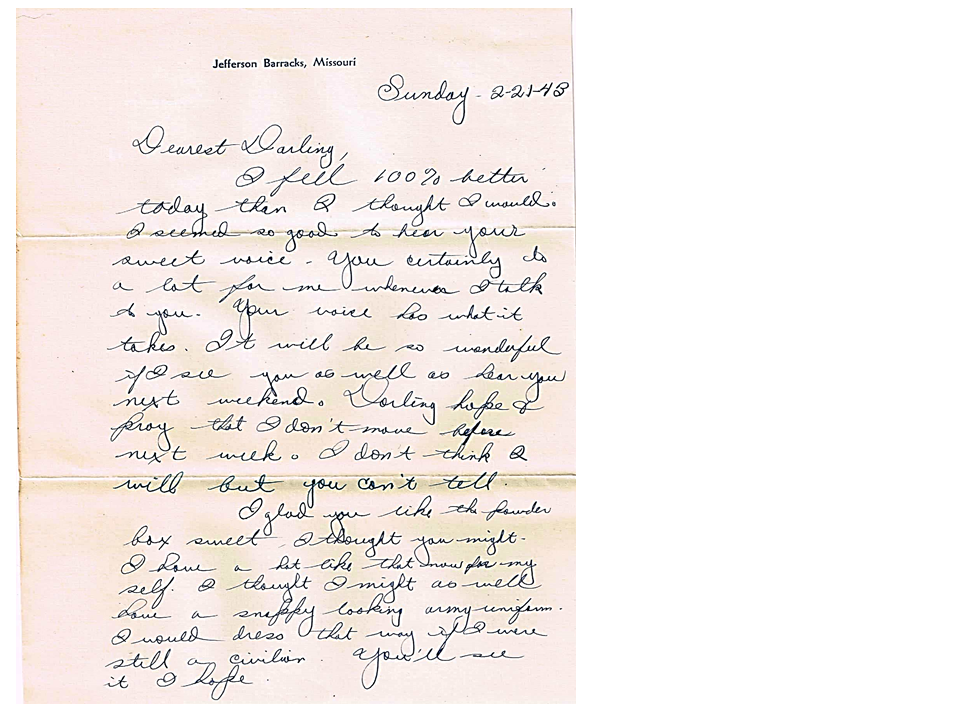 Jefferson Barracks, Missouri
Sunday - 2-21-43
Dearest Darling,
I fell 100% better
today than I thought I would.
I seemed so good to hear your
sweet voice - You certainly do
a lot for me whenever I talk
to you. Your voice has what it
takes. It will be so wonderful
if I see you as well as hear you
next weekend. Darling hope &
pray that I don't move before
next week. I don't think I
will but you can't tell.
I glad you like the powder
box sweet, I thought you might.
I have a hat like that now for my
self. I thought I might as well
have a snappy looking army uniform.
I would dress that way if I were
still a civilian. You'll see
it I hope.